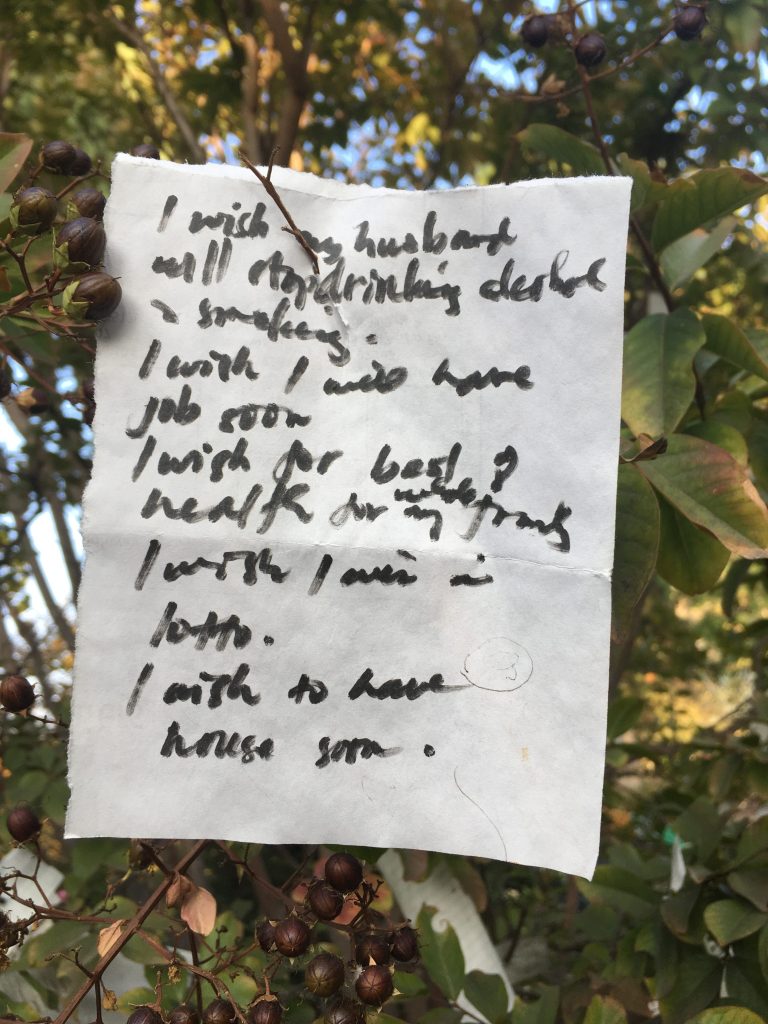 I wish my husband
will stop drinking alcohol
& smoking.
I wish I will have
job soon
I wish for best of
health for my whole family
I wish I win in
lotto.
I wish to have
house soon.